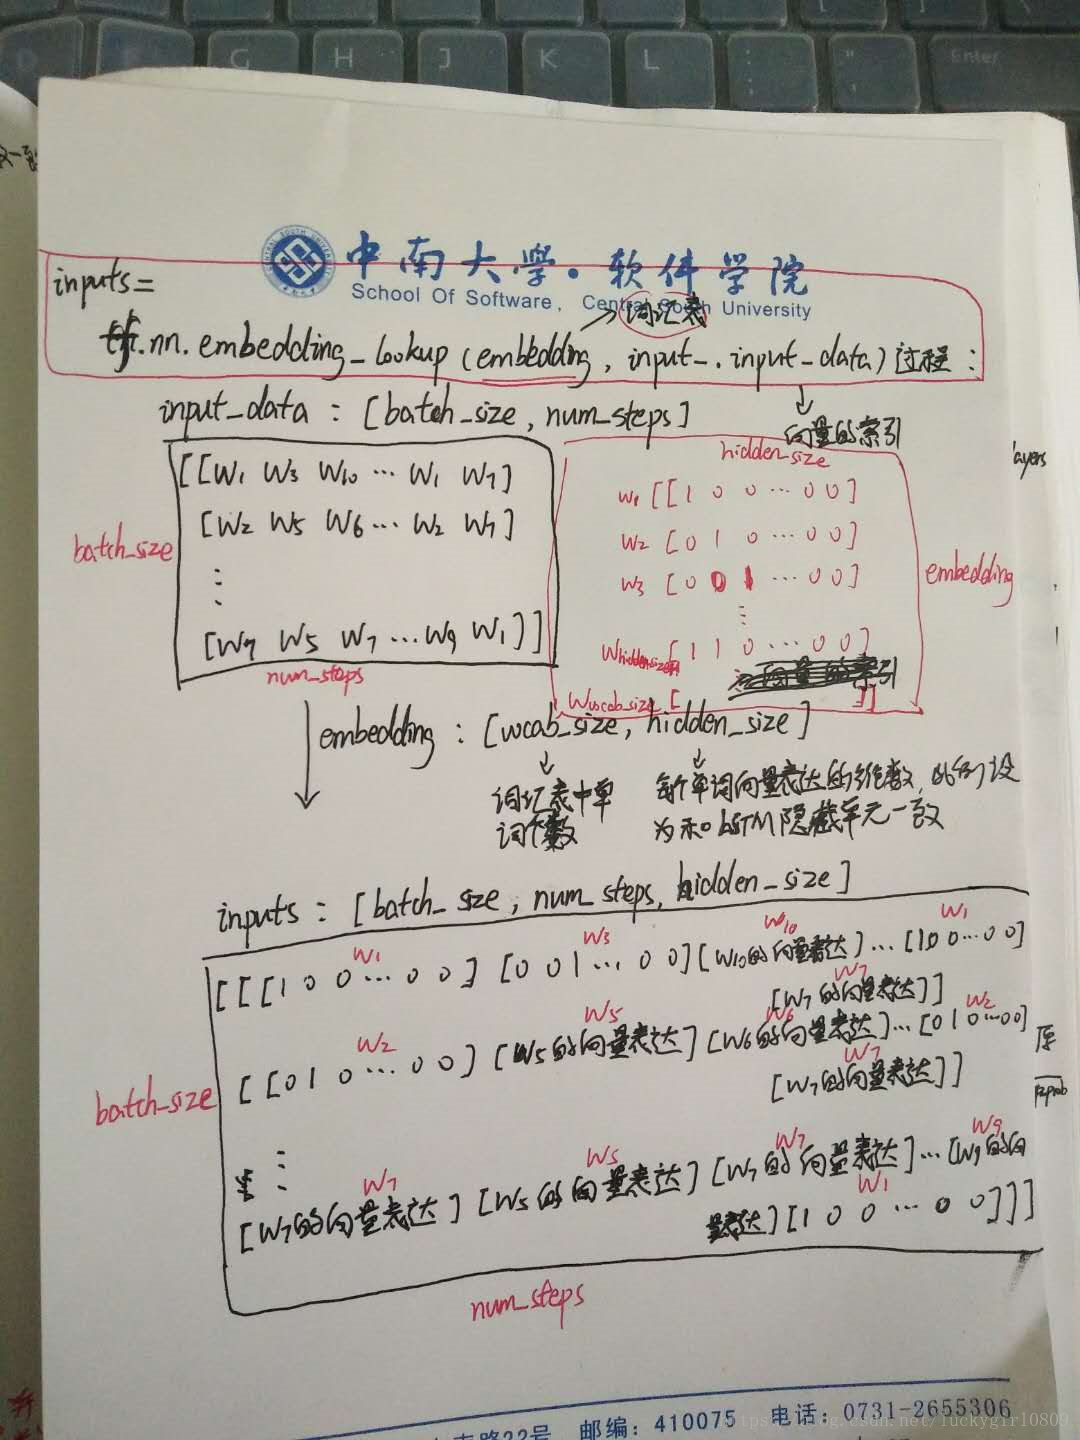 G H J K L : ; " ' Enter
中南大学·软件学院
School Of Software, Central South University
inputs=
词汇表
tf.nn.embedding_lookup (embedding, input_.input_data) 过程:
input_data : [batch_size, num_steps]
向量的索引
layers
hidden_size
[[W1 W3 W10 ... W1 W7]
W1 [[1 0 0 ... 0 0]
[W2 W5 W6 ... W2 W7]
W2 [0 1 0 ... 0 0]
batch_size
W3 [0 0 1 ... 0 0]
embedding
[W7 W5 W7 ... W9 W1]]
Whiddensize [1 1 0 ... 0 0]
num_steps
Wvocab_size [ ]]
embedding : [vocab_size, hidden_size]
词汇表中单
词个数
每个单词向量表达的维数, 此例设
为和LSTM隐藏单元一致
inputs : [batch_size, num_steps, hidden_size]
W1 W3 W10 W1
[[[1 0 0 ... 0 0] [0 0 1 ... 0 0] [W10的向量表达] ... [1 0 0 ... 0 0]
W7
[W7的向量表达]]
W2 W5 W6 W2
[[0 1 0 ... 0 0] [W5的向量表达] [W6的向量表达] ... [0 1 0 ... 0 0]
W7
[W7的向量表达]]
batch_size
W7 W5 W7 W9
[W7的向量表达] [W5的向量表达] [W7的向量表达] ... [W9的向
W1
量表达] [1 0 0 ... 0 0]]]
num_steps
22号 邮编: 410075 电话: 0731-2655306
csdn.net/luckygirl0809